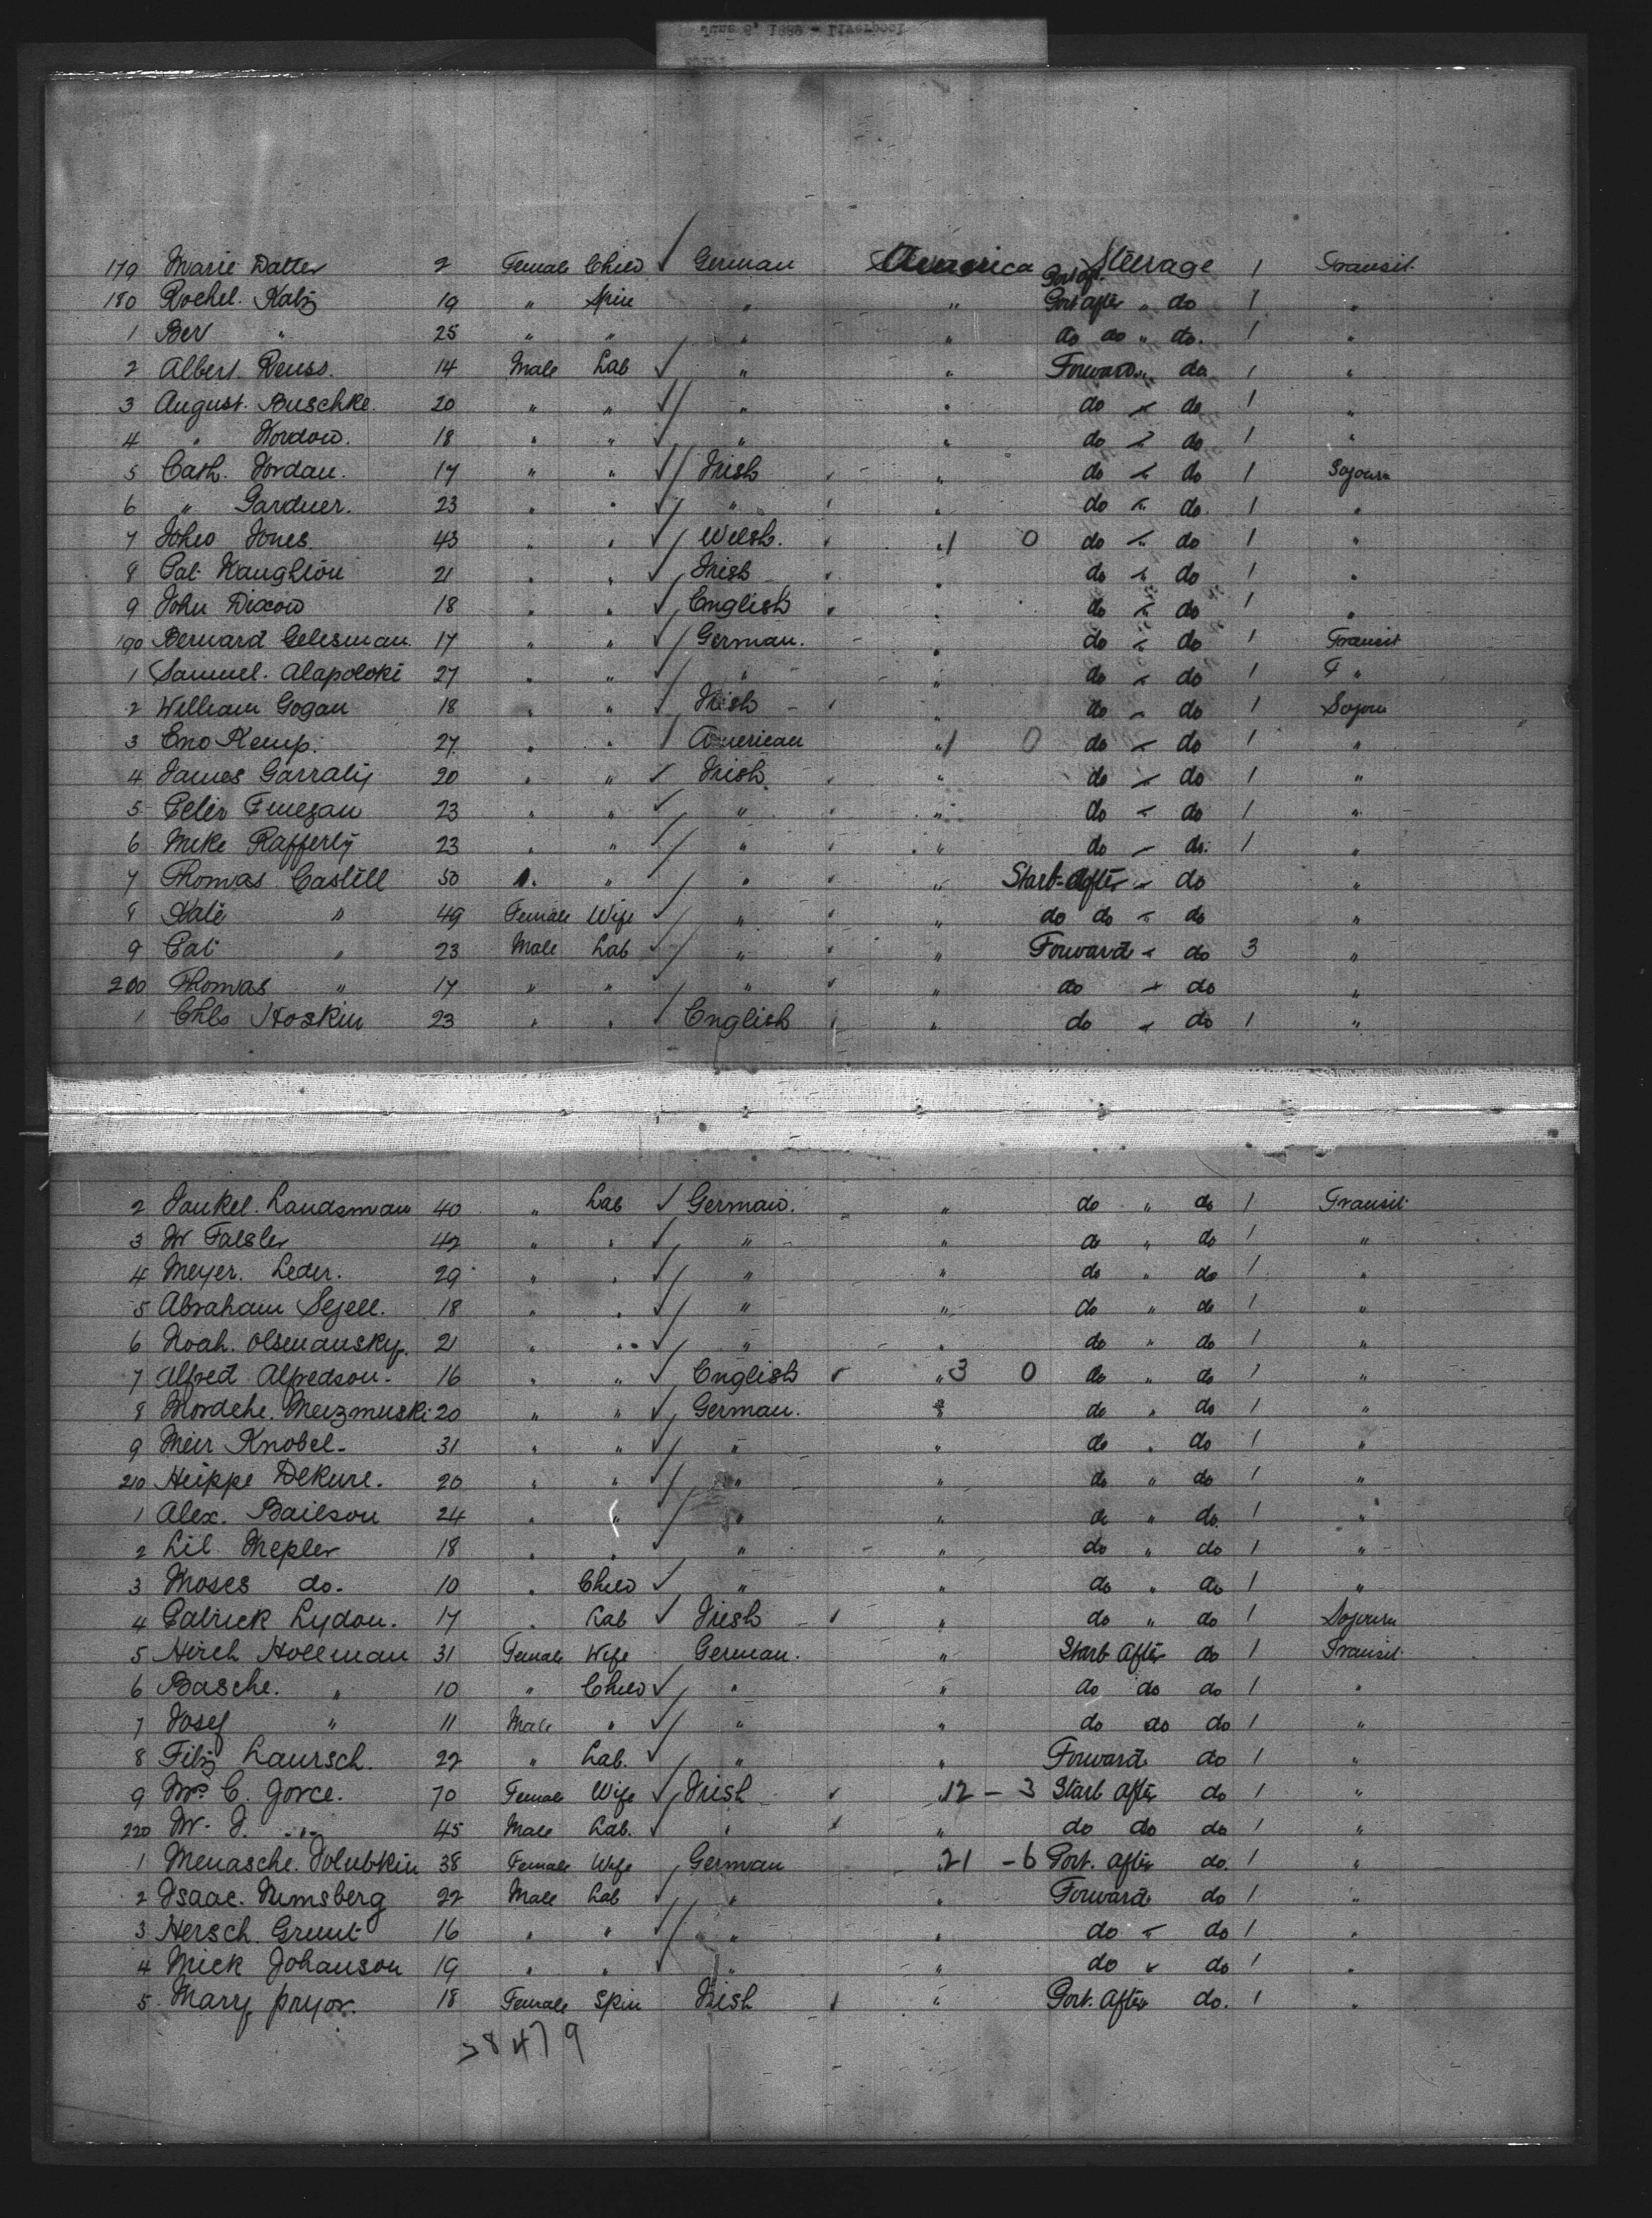 June 5, 1889 - Liverpool
179 Marie Datter 2 Female Child ✓ German America Steerage 1 Transit
180 Rochel. Katz 19 " Spin " " Port after " do 1 "
1 Ber " 25 " " " " do do " do. 1 "
2 Albert Reuss. 14 Male Lab ✓ " " Forward " do. 1 "
3 August. Buschke. 20 " " ✓ " " do " do 1 "
4 " Nordow. 18 " " ✓ " " do " do 1 "
5 Cath. Jordan. 17 " " ✓ Irish " do " do 1 Sojourn
6 " Gardner. 23 " " ✓ " " do " do 1 "
7 John Jones 43 " " ✓ Welsh. " 1 0 do " do 1 "
8 Pat Naughton 21 " " ✓ Irish " do " do 1 "
9 John Dixon 18 " " ✓ English " do " do 1 "
190 Bernard Gelesman. 17 " " ✓ German. " do " do 1 Transit
1 Samuel. Alapoloki 27 " " ✓ " " do " do 1 T "
2 William Gogan 18 " " ✓ Irish " do " do 1 Sojourn
3 Eno Kemp. 27 " " ✓ American " 1 0 do " do 1 "
4 James Garraty 20 " " ✓ Irish " do " do 1 "
5 Peter Finegan 23 " " ✓ " " do " do 1 "
6 Mike Rafferty 23 " " ✓ " " do " do. 1 "
7 Thomas Castell 50 " " " " Starb-After " do "
8 Kate " 49 Female Wife ✓ " " do do " do "
9 Pat " 23 Male Lab ✓ " " Forward " do 3 "
200 Thomas " 17 " " ✓ " " do " do "
1 Chls Hoskin 23 " " ✓ English " do " do 1 "
2 Jankel. Landsman 40 " Lab ✓ German. " do " do 1 Transit
3 W Faesler 42 " " ✓ " " do " do 1 "
4 Meyer. Leder. 29 " " ✓ " " do " do 1 "
5 Abraham Segell. 18 " " ✓ " " do " do 1 "
6 Noah. Olsmansky. 21 " " ✓ " " do " do 1 "
7 Alfred Alfredson. 16 " " ✓ English " 3 0 do " do 1 "
8 Mordche. Meizmuski 20 " " ✓ German. " do " do 1 "
9 Meir Knobel. 31 " " ✓ " " do " do 1 "
210 Heippe Dekure. 20 " " ✓ " " do " do 1 "
1 Alex. Bailson 24 " " " " do " do. 1 "
2 Lil Mepler 18 " " ✓ " " do " do 1 "
3 Moses do. 10 " Child ✓ " " do " do 1 "
4 Patrick Lydon. 17 " Lab ✓ Irish " do " do 1 Sojourn
5 Hirch Hollman 31 Female Wife German. " Starb After do 1 Transit
6 Basche. " 10 " Child ✓ " " do do do 1 "
7 Josef " 11 Male " ✓ " " do do do 1 "
8 Fitz Laursch. 22 " Lab. ✓ " " Forward do 1 "
9 Mrs C. Joyce. 70 Female Wife ✓ Irish " 12 - 3 Starb After do 1 "
220 W. J. " 45 Male Lab. ✓ " " do do do 1 "
1 Menasche. Jolubkin 38 Female Wife German " 21 - 6 Port. After do. 1 "
2 Isaac. Nimsberg 22 Male Lab ✓ " " Forward do 1 "
3 Hersch. Grunt 16 " " ✓ " " do " do 1 "
4 Mick Johanson 19 " " ✓ " " do " do 1 "
5 Mary Pryor. 18 Female Spin Irish " Port. After do. 1 "
8479